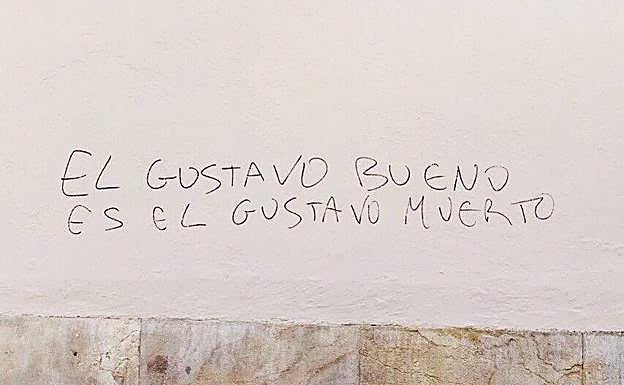 EL GUSTAVO BUENO
ES EL GUSTAVO MUERTO